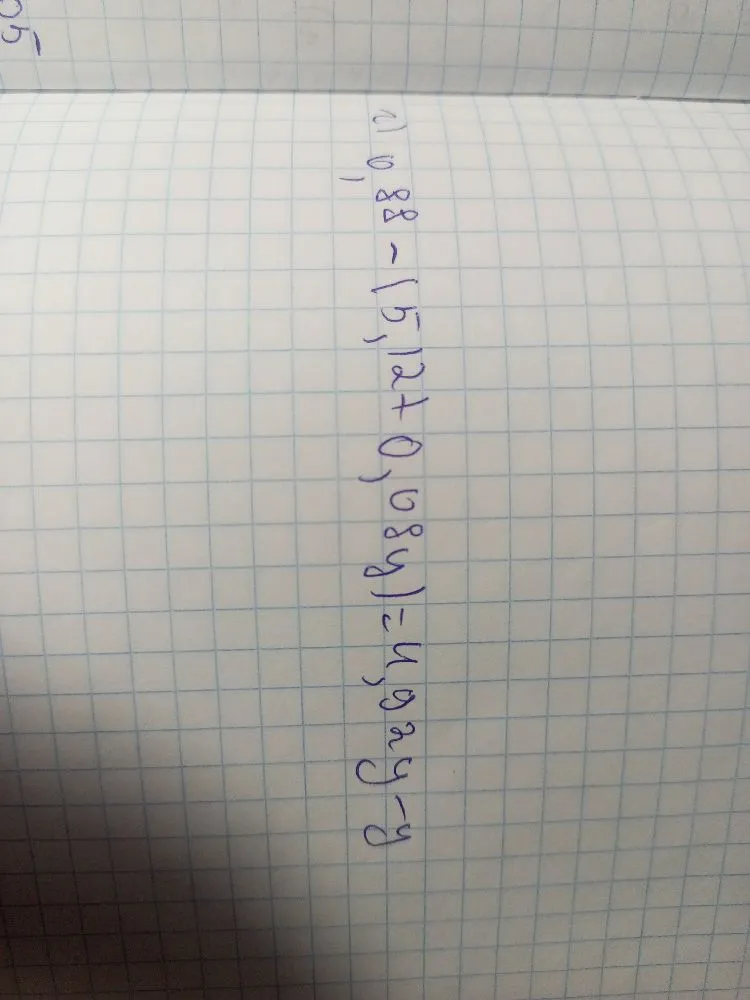 05
г) 0,88 - (5,12 + 0,08y) = 4,92y - y